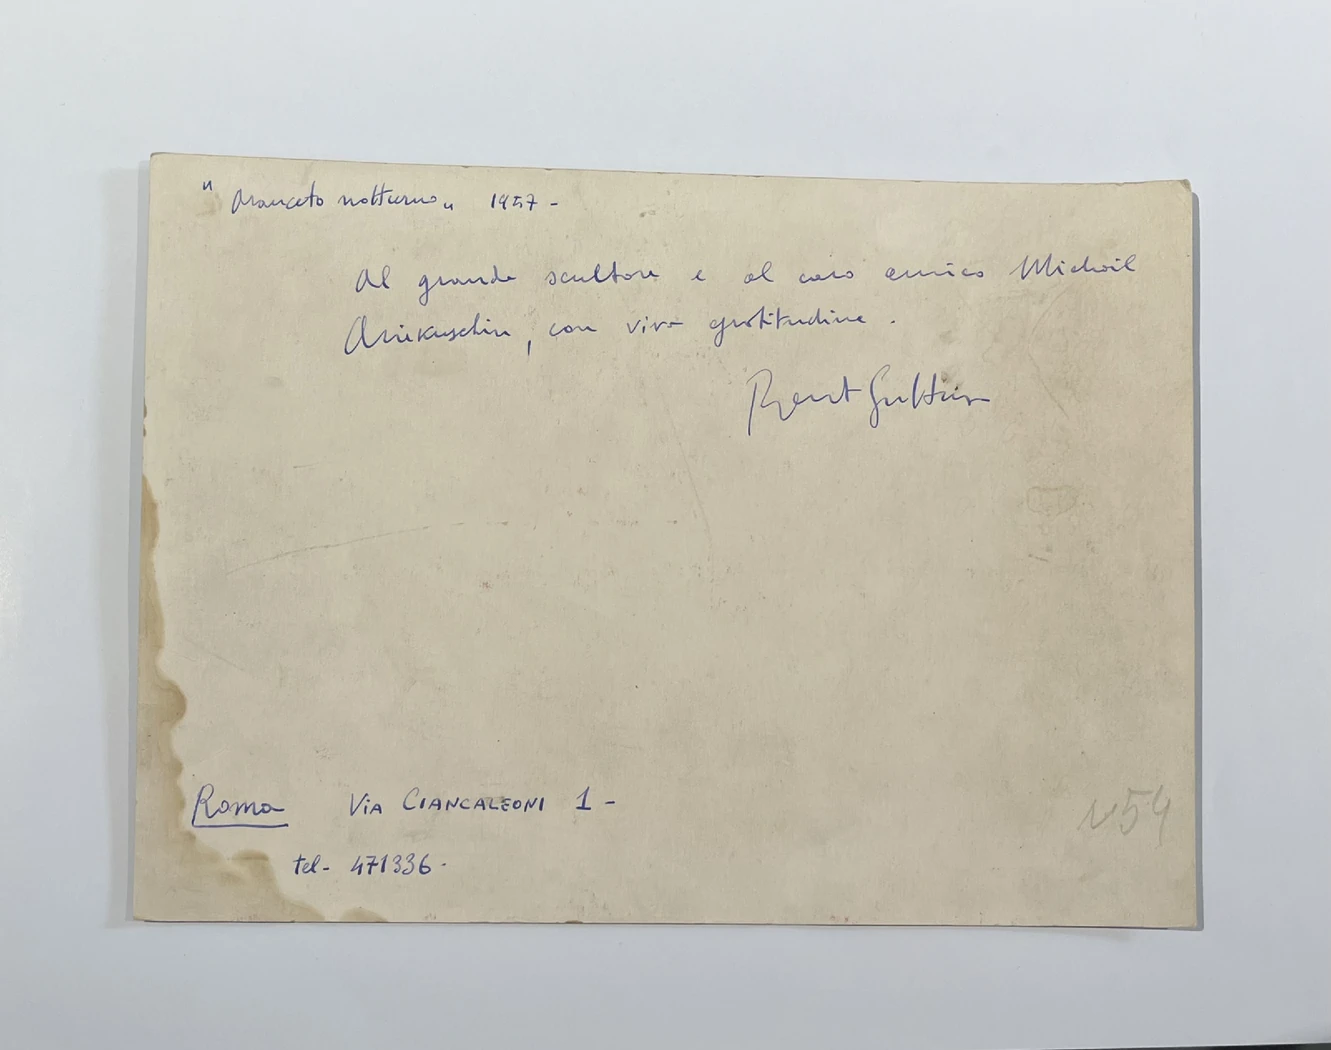 " Aranceto notturno „ 1957 -
Al grande scultore e al caro amico Michail
Anikuschin, con viva gratitudine.
Renato Guttuso
Roma Via CIANCALEONI 1 -
tel - 471336 -
N54